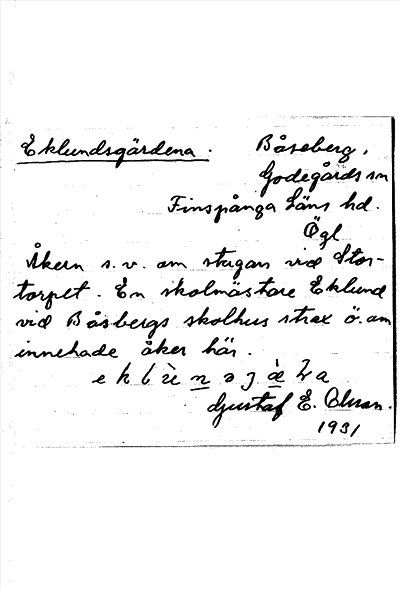 Eklundsgärdena. Båseberg,
Godegårds sn
Finspånga läns hd.
Ögl
Åkern s.v. om stugan vid Stor-
torpet. En skolmästare Eklund
vid Båsbergs skolhus strax ö. om
innehade åker här.
Gustaf E. Olsson.
1931